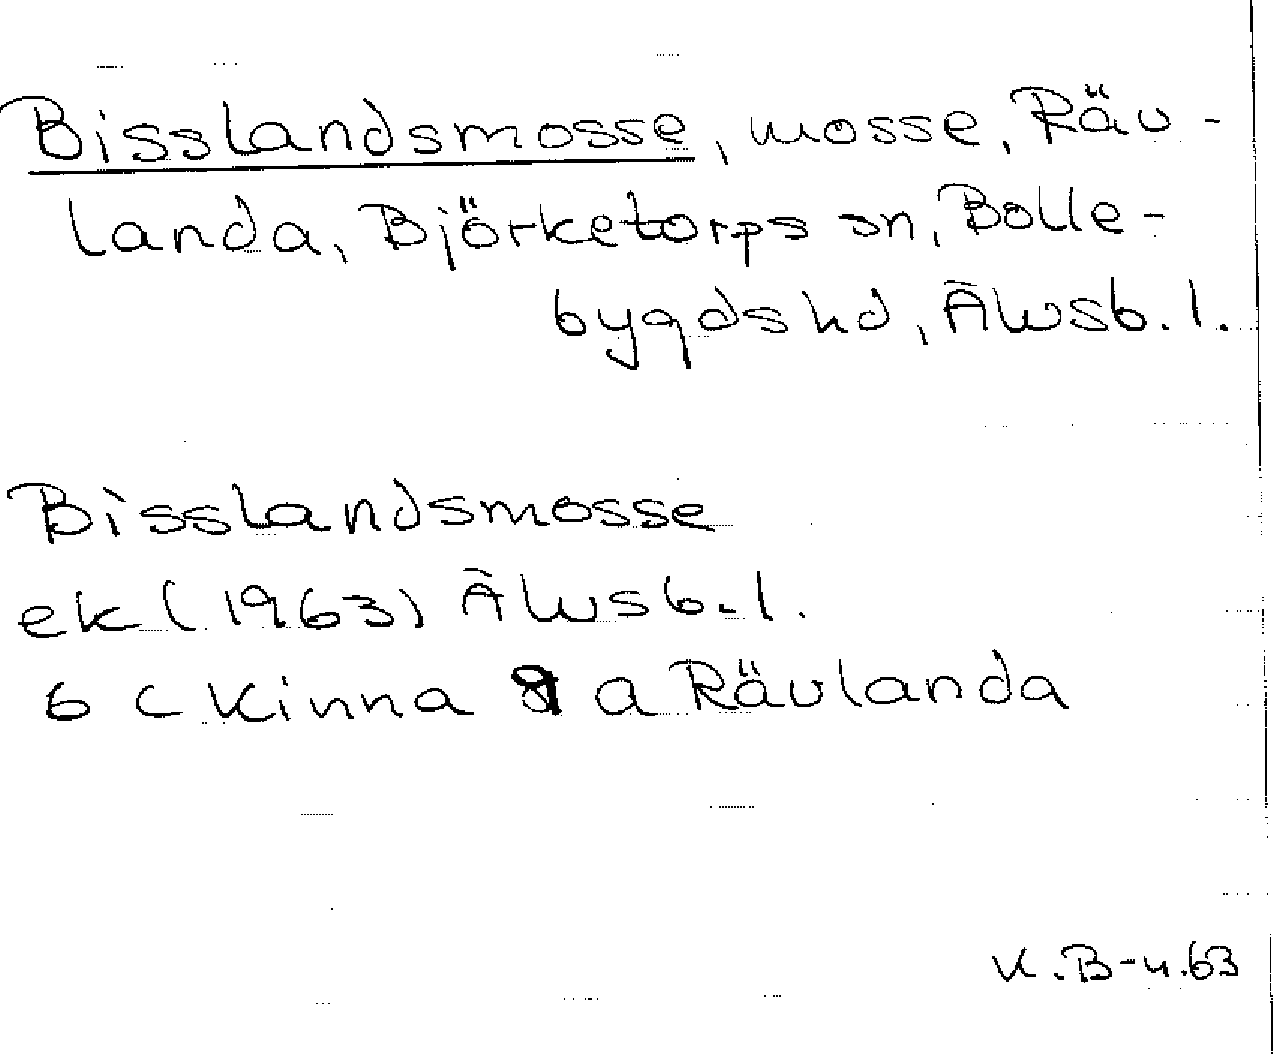 Bisslandsmosse, mosse, Räv-
landa, Björketorps sn, Bolle-
bygds hd, Älvsb. l.
Bisslandsmosse
ek (1963) Älvsb. l.
6 C Kinna 9 a Rävlanda
K.B-n.63